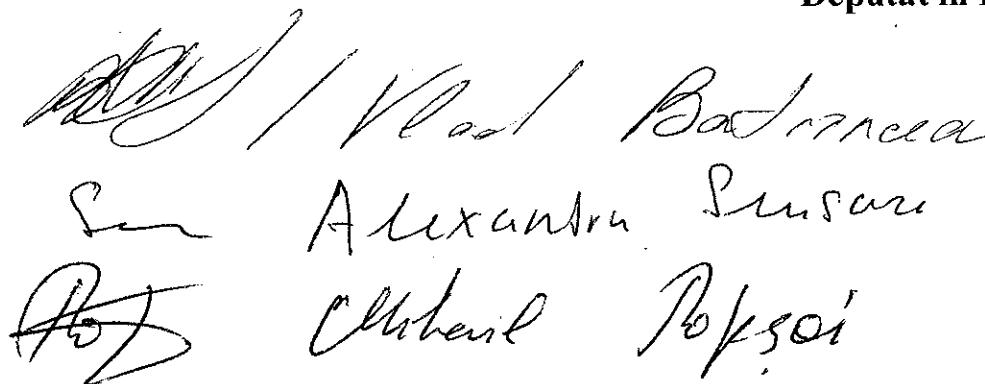 Deputat în
/ Vlad Batrîncea
Alexandru Slusari
Mihail Popșoi